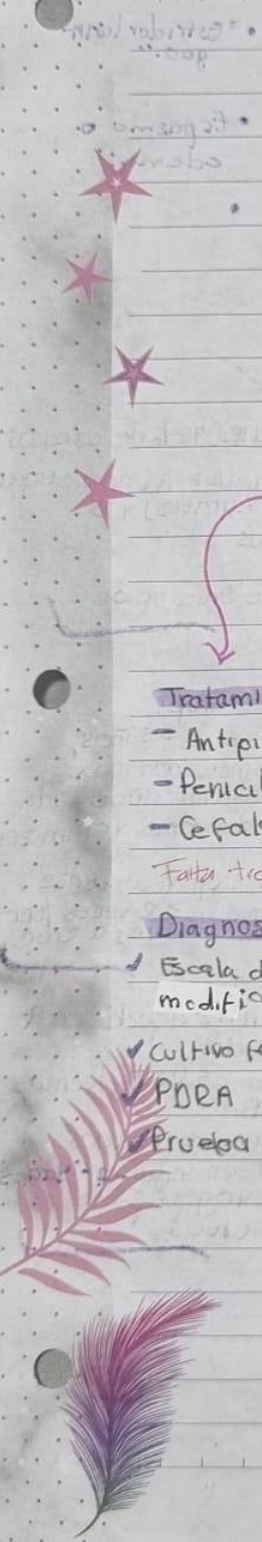 Tratami
- Antipi
- Penicil
- Cefal
Falta tra
Diagnos
✓ Escala d
modific
✓ Cultivo f
✓ PDRA
✓ Prueba